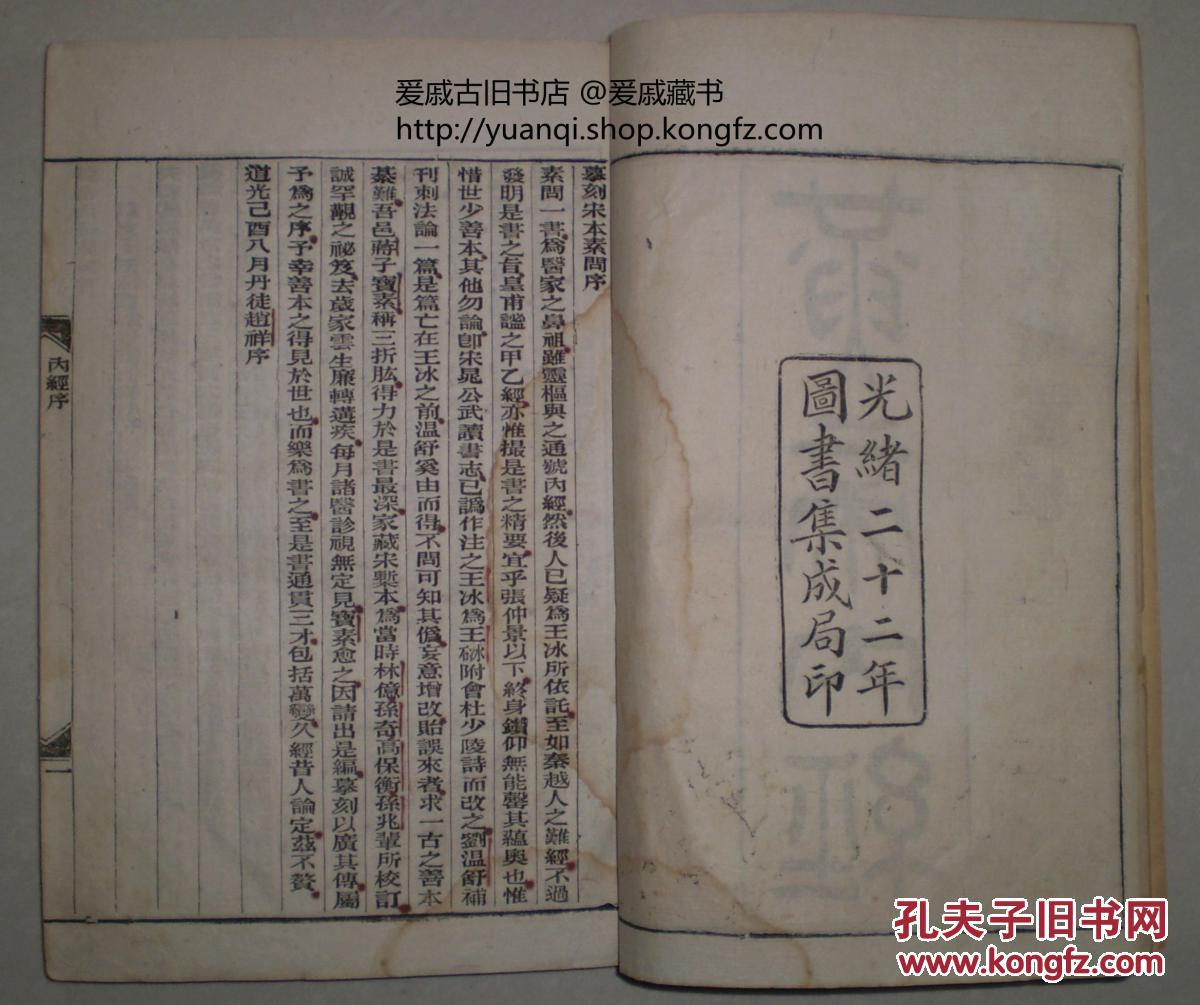 爰戚古旧书店 @爰戚藏书
http://yuanqi.shop.kongfz.com
光緒二十二年
圖書集成局印
摹刻宋本素問序
素問一書爲醫家之鼻祖雖靈樞與之通號內經然後人已疑爲王冰所依託至如秦越人之難經不過
發明是書之旨皇甫謐之甲乙經亦惟撮是書之精要宜乎張仲景以下終身鑽仰無能罄其蘊奥也惟
惜世少善本其他勿論卽宋晁公武讀書志已譌作注之王冰爲王砅附會杜少陵詩而改之劉温舒補
刊刺法論一篇是篇亡在王冰之前温舒奚由而得不問可知其僞妄意增改貽誤來者求一古之善本
綦難吾邑蔣子寶素稱三折肱得力於是書最深家藏宋槧本爲當時林億孫奇高保衡孫兆輩所校訂
誠罕觀之祕笈去歲家雲生廉轉遘疾每月諸醫診視無定見寶素愈之因請出是編摹刻以廣其傳屬
予爲之序予幸善本之得見於世也而樂爲書之至是書通貫三才包括萬變久經昔人論定茲不贅
道光己酉八月丹徒趙祥序
內經序
一
孔夫子旧书网
www.kongfz.com